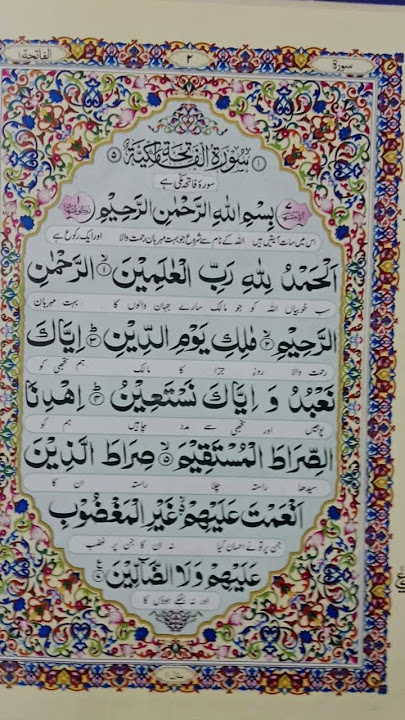 الفاتحة ١ ٢ سورة
١ سُوْرَةُ الْفَاتِحَةِ مَكِّيَّةٌ ٥
سورۂ فاتحہ مکی ہے
بِسْمِ اللهِ الرَّحْمٰنِ الرَّحِيْمِ
اس میں سات آیتیں ہیں اللہ کے نام سے شروع جو بہت مہربان رحمت والا اور ایک رکوع ہے
اَلْحَمْدُ لِلّٰهِ رَبِّ الْعٰلَمِيْنَ ١ الرَّحْمٰنِ
سب خوبیاں اللہ کو جو مالک سارے جہان والوں کا بہت مہربان
الرَّحِيْمِ ٢ مٰلِكِ يَوْمِ الدِّيْنِ ٣ اِيَّاكَ
رحمت والا روز جزا کا مالک ہم تجھی کو
نَعْبُدُ وَ اِيَّاكَ نَسْتَعِيْنُ ٤ اِهْدِنَا
پوجیں اور تجھی سے مدد چاہیں ہم کو
الصِّرَاطَ الْمُسْتَقِيْمَ ٥ صِرَاطَ الَّذِيْنَ
سیدھا راستہ چلا راستہ ان کا
اَنْعَمْتَ عَلَيْهِمْ غَيْرِ الْمَغْضُوْبِ
جن پر تو نے احسان کیا نہ ان کا جن پر غضب
عَلَيْهِمْ وَلَا الضَّآلِّيْنَ
اور نہ بہکے ہوؤں کا